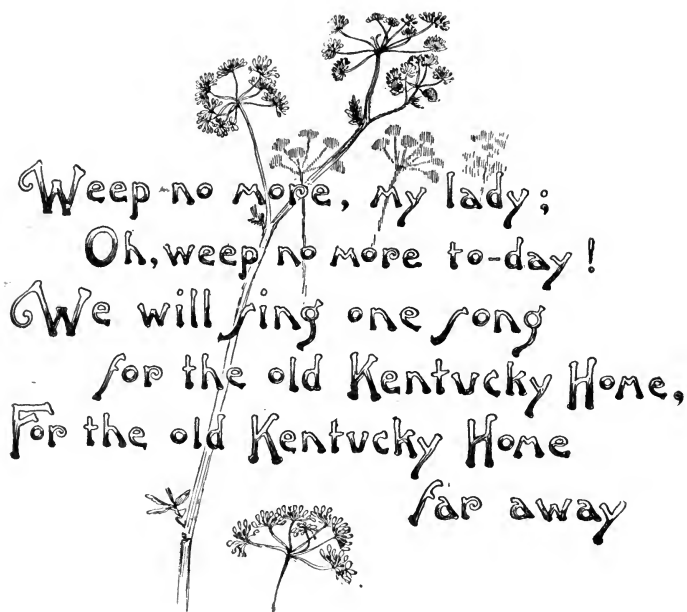 Weep no more, my lady;
Oh, weep no more to-day!
We will sing one song
for the old Kentucky Home,
For the old Kentucky Home
far away